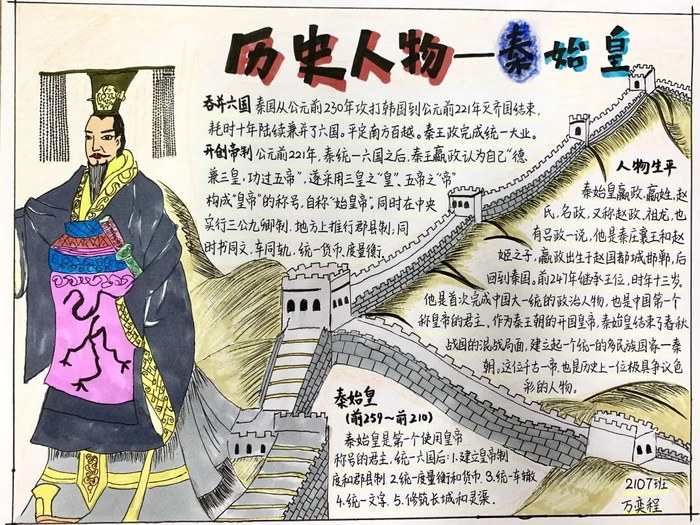 历史人物—秦始皇
吞并六国 秦国从公元前230年攻打韩国到公元前221年灭齐国结束,
耗时十年陆续兼并了六国。平定南方百越。秦王政完成统一大业。
开创帝制 公元前221年,秦统一六国之后,秦王嬴政认为自己“德
兼三皇,功过五帝”,遂采用三皇之“皇”、五帝之“帝”
构成“皇帝”的称号,自称“始皇帝”。同时在中央
实行三公九卿制,地方上推行郡县制,同
时书同文,车同轨,统一货币、度量衡
人物生平
秦始皇嬴政,嬴姓,赵
氏,名政,又称赵政、祖龙,也
有吕政一说,他是秦庄襄王和赵
姬之子,嬴政出生于赵国都城邯郸,后
回到秦国。前247年继承王位,时年十三岁。
他是首次完成中国大一统的政治人物,也是中国第一个
称皇帝的君主。作为秦王朝的开国皇帝,秦始皇结束了春秋
战国的混战局面,建立起个统一的多民族国家—秦
朝。这位千古一帝,也是历史上一位极具争议色
彩的人物。
秦始皇
(前259~前210)
秦始皇是第一个使用皇帝
称号的君主,统一六国后:1.建立皇帝制
度和郡县制 2.统一度量衡和货币 3.统一车辙
4.统一文字. 5.修筑长城和灵渠.
2107班
万奕程